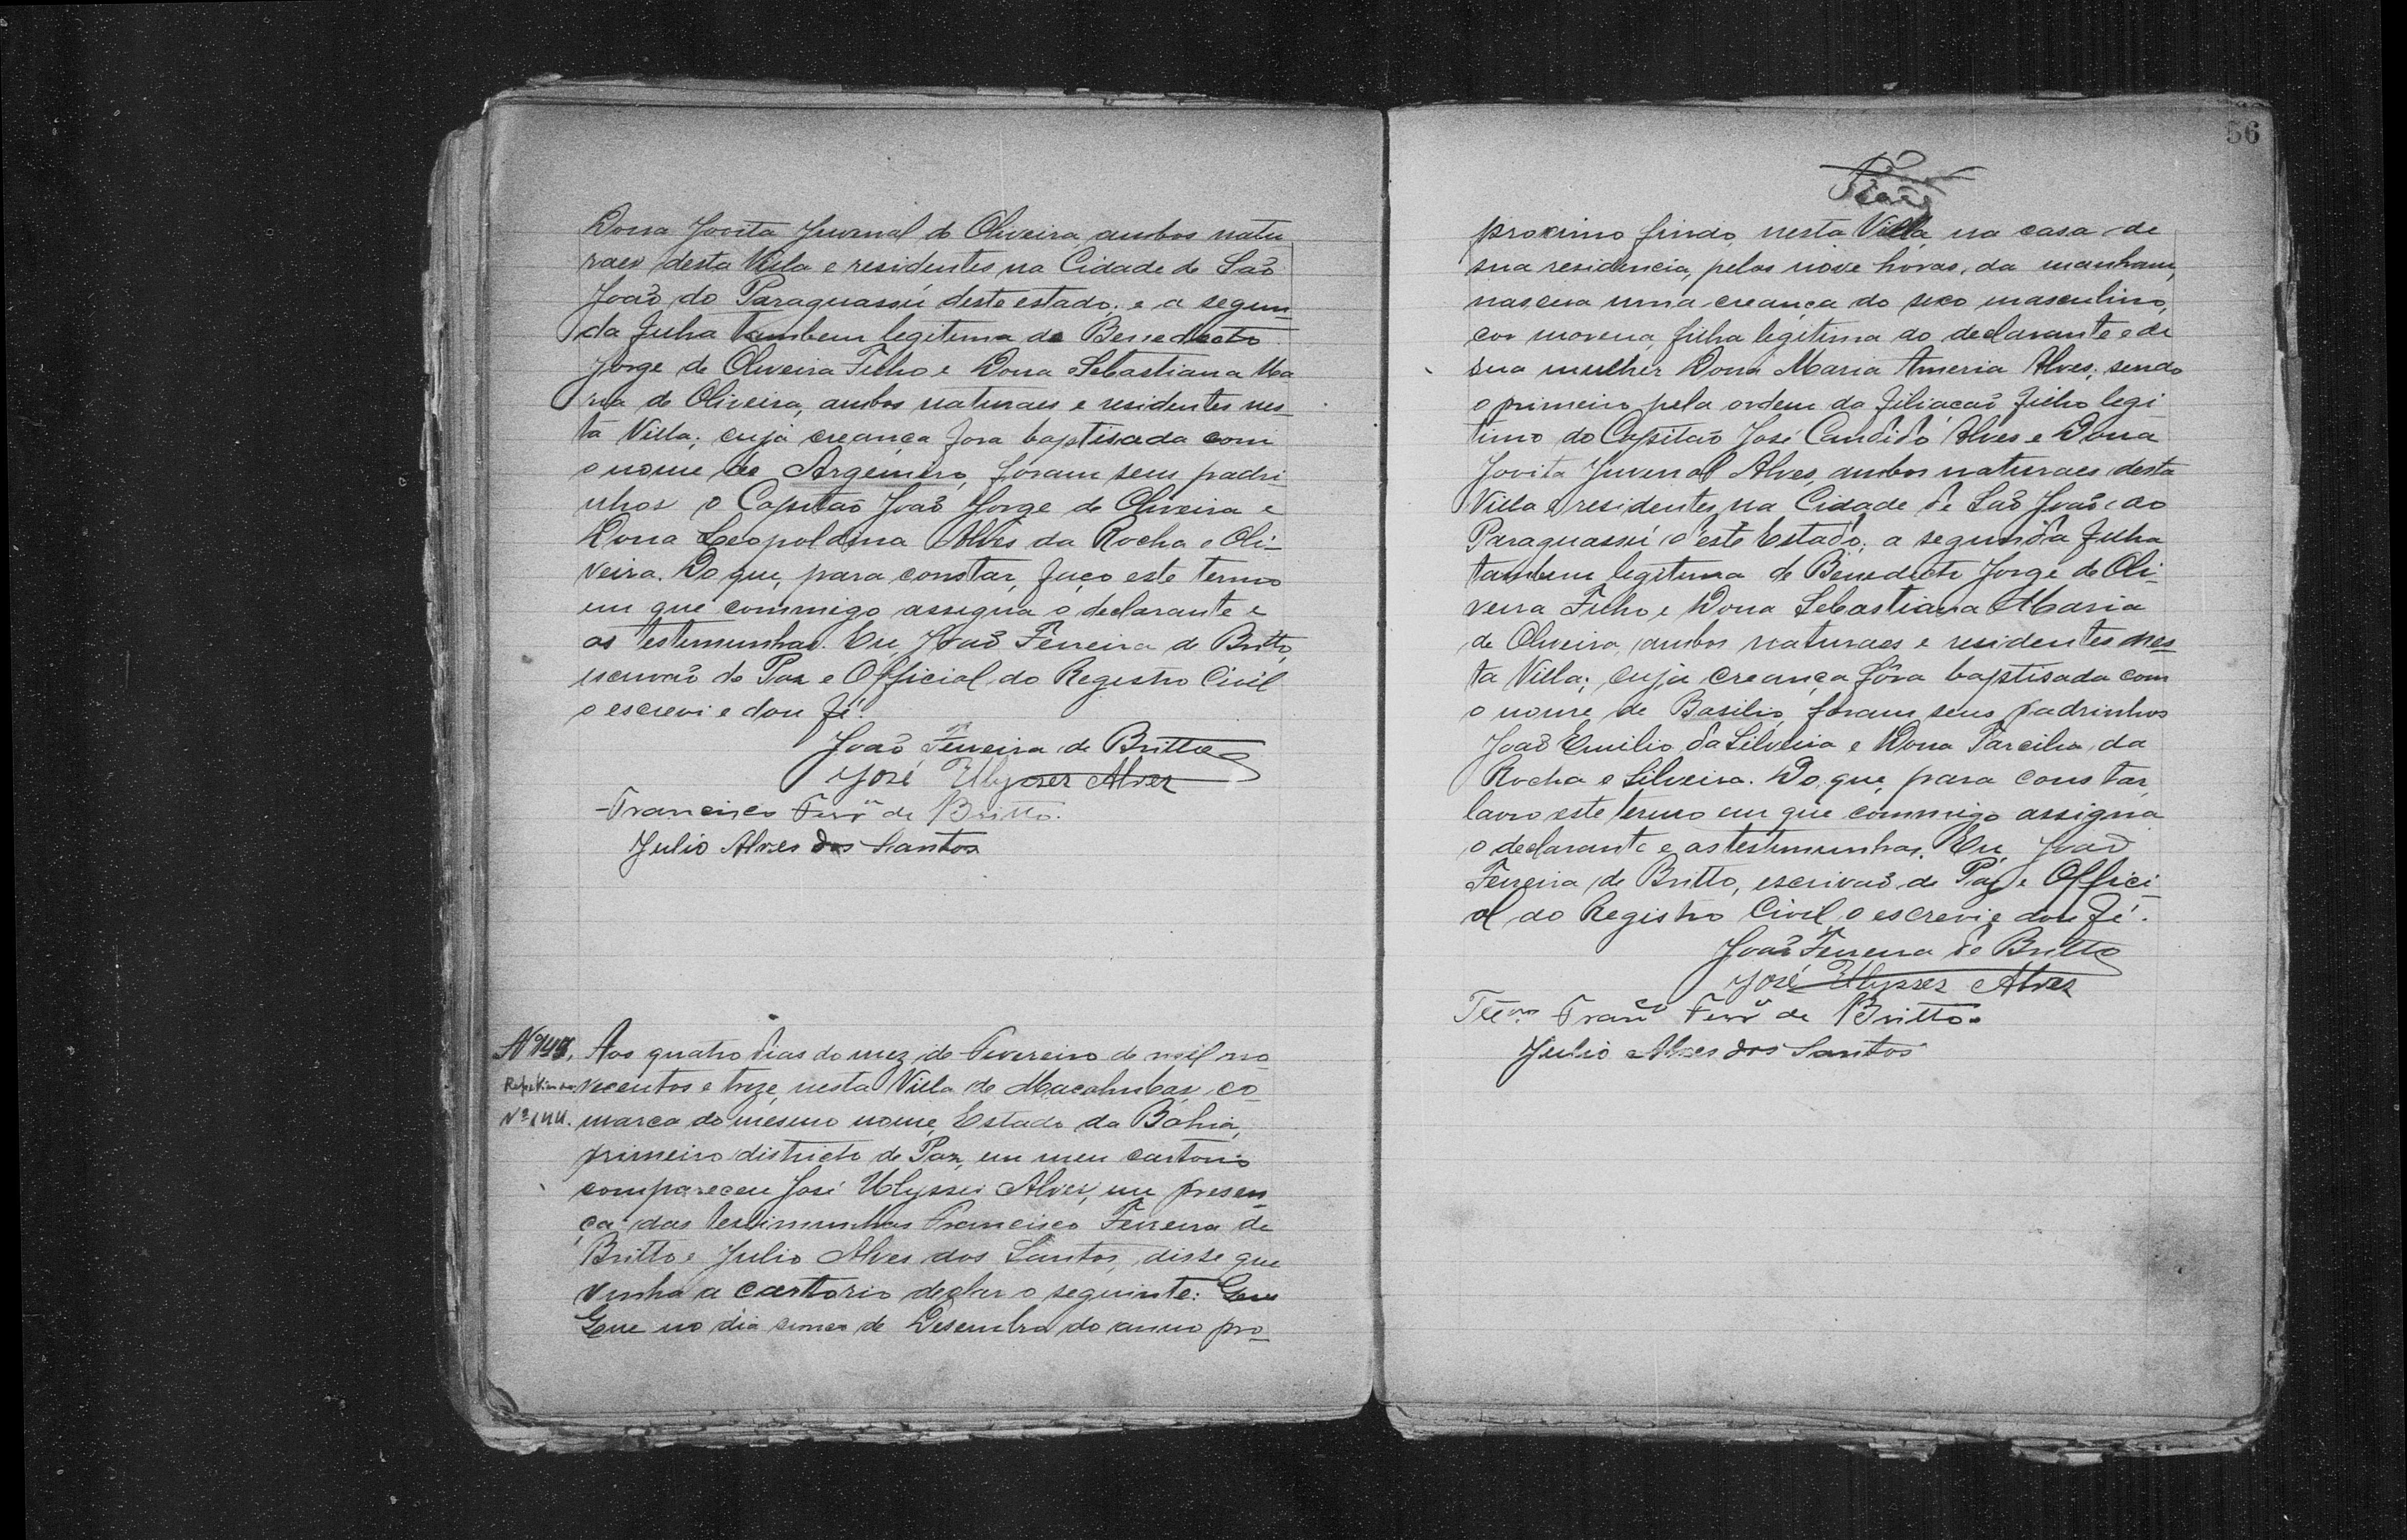 Dona Jovita Juvenal de Oliveira, ambos natu
raes desta Villa e residentes na Cidade de São
João do Paraguassú deste estado; e a segun-
da filha tambem legitima de Benedicto
Jorge de Oliveira Filho e Dona Sebastiana Ma
ria de Oliveira, ambos naturaes e residentes nes-
ta Villa; cuja creança fora baptisada com
o nome de Argemiro, foram seus padri-
nhos o Capitão João Jorge de Oliveira e
Dona Leopoldina Alves da Rocha e Oli-
veira. Do que, para constar, faço este termo
em que commigo assigna o declarante e
as testemunhas. Eu, João Ferreira de Britto,
escrivão de Paz e Official do Registro Civil
o escrevi e dou fé.
João Ferreira de Britto
José Ulysses Alves
Francisco Ferrª de Britto.
Julio Alves dos Santos
Aos quatro dias do mez de Fevereiro de mil no
vecentos e treze, nesta Villa de Macahubas, co-
Nº 144. marca do mesmo nome, Estado da Bahia,
primeiro districto de Paz, em meu cartorio
compareceu José Ulysses Alves, em presen-
ça das testimunhas Francisco Ferreira de
Britto e Julio Alves dos Santos, disse que
vinha a cartorio declar o seguinte: Que
Que no dia cinco de Desembro do anno pro-
56
proximo findo, nesta Villa, na casa de
sua residencia, pelas nove horas, da manham,
nascera uma creança do sexo masculino,
cor morena, filha legitima do declarante e de
sua mulher Dona Maria Ameria Alves; sendo
o primeiro pela ordem da filiacaõ filho legi-
timo do Capitão José Candido Alves e Dona
Jovita Juvenal Alves, ambos naturaes desta
Villa e residentes na Cidade de São João do
Paraguassú d'este Estado; a segunda filha
tambem legitima de Benedicto Jorge de Oli-
veira Filho e Dona Sebastiana Maria
de Oliveira, ambos naturaes e residentes nes-
ta Villa; cuja creança fôra baptisada com
o nome de Basilio, foram seus padrinhos
João Emilio da Silveira e Dona Tarcilia da
Rocha e Silveira. Do que, para constar,
lavro este termo em que commigo assigna
o declarante e as testimunhas. Eu, João
Ferreira de Britto, escrivaõ de Paz e Offici-
al do Registro Civil o escrevi e dou fé.
João Ferreira de Britto
José Ulysses Alves
Franco Ferrª de Britto.
Julio Alves dos Santos